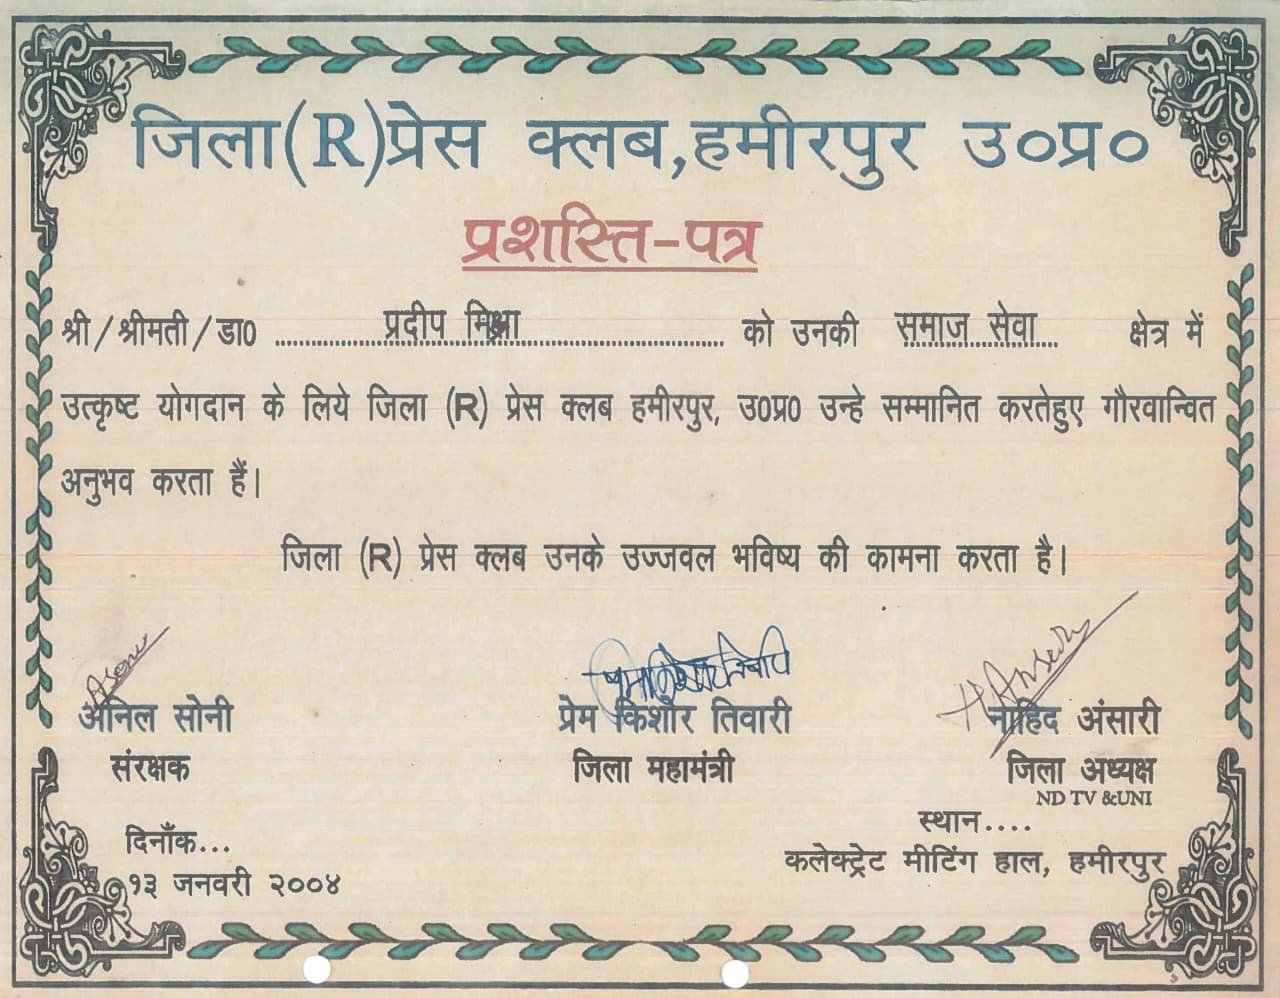 जिला(R)प्रेस क्लब,हमीरपुर उ०प्र०
प्रशस्ति-पत्र
श्री/श्रीमती/डा0 .......प्रदीप मिश्रा....... को उनकी समाज सेवा क्षेत्र में
उत्कृष्ट योगदान के लिये जिला (R) प्रेस क्लब हमीरपुर, उ0प्र0 उन्हे सम्मानित करतेहुए गौरवान्वित
अनुभव करता हैं।
जिला (R) प्रेस क्लब उनके उज्जवल भविष्य की कामना करता है।
अनिल सोनी प्रेम किशोर तिवारी नाहिद अंसारी
संरक्षक जिला महामंत्री जिला अध्यक्ष
ND TV &UNI
स्थान....
दिनाँक...
कलेक्ट्रेट मीटिंग हाल, हमीरपुर
१३ जनवरी २००४